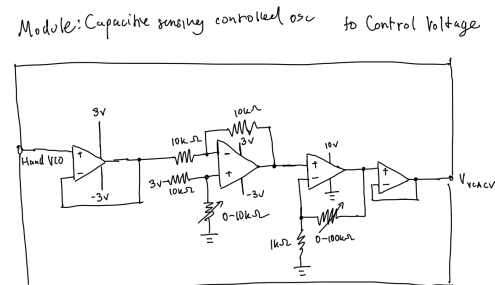 Module: Capacitive sensing controlled osc to Control Voltage
Hand VCO
8V
-3V
+
-
10kΩ
10kΩ
3V
-3V
-
+
3V
10kΩ
0-10kΩ
10V
+
-
1kΩ
0-100kΩ
+
-
V_VCACV